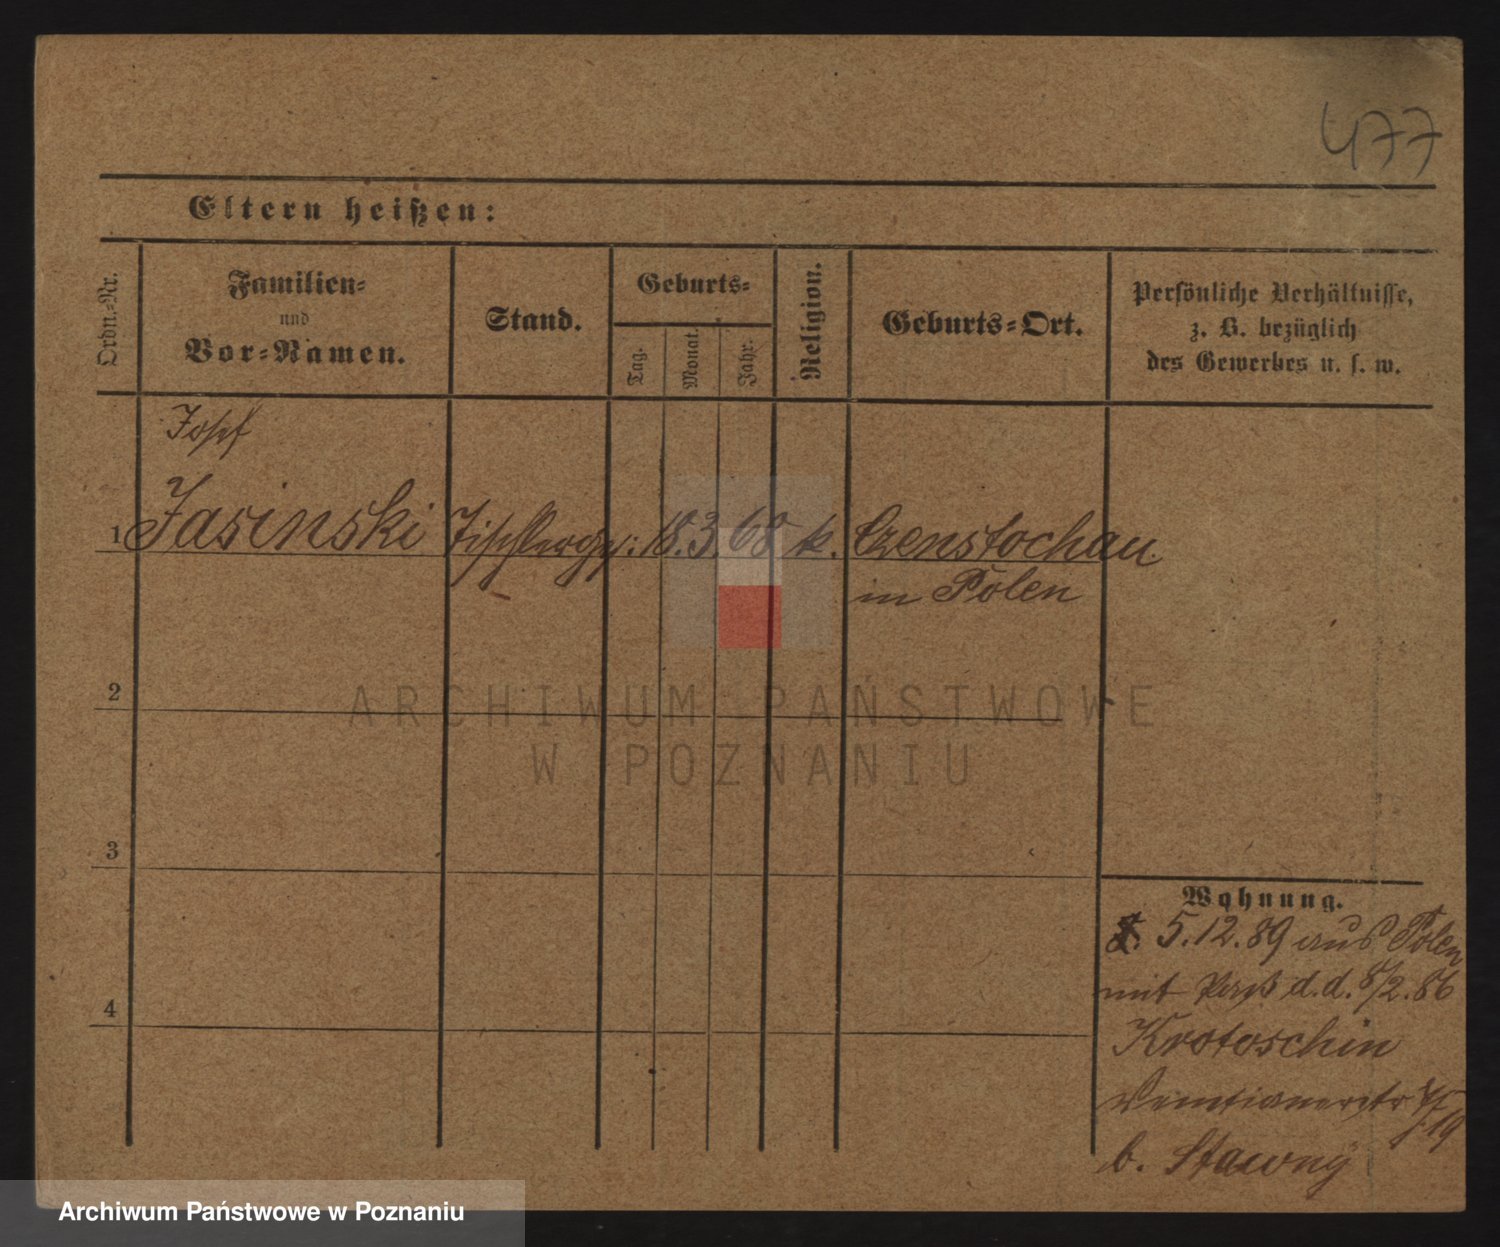 477
Eltern heißen:
Ordn.-Nr.
Familien-
und
Vor-Namen.
Stand.
Geburts-
Tag.
Monat.
Jahr.
Religion.
Geburts-Ort.
Persönliche Verhältnisse,
z. B. bezüglich
des Gewerbes u. s. w.
Josef
1 Jasinski Tischlerges: 18. 3. 68 k. Czenstochau
in Polen
2
3
4
Wohnung.
5.12.89 aus Polen
mit Paß d. d. 8/2.86
Krotoschin
b. Stawny
ARCHIWUM PAŃSTWOWE
W POZNANIU
Archiwum Państwowe w Poznaniu